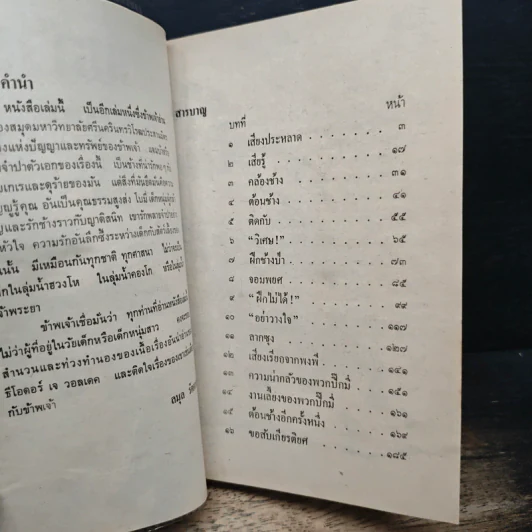 คำนำ
หนังสือเล่มนี้ เป็นอีกเล่มหนึ่งซึ่งข้าพเจ้า
องสมุดมหาวิทยาลัยศรีนครินทรวิโรฒประสานมิตร
องแห่งปัญญาและทรัพย์ของข้าพเจ้า
จำปาตัวเอกของเรื่องนี้ เป็นช้างที่น่ารัก
ยเกเรและดุร้ายของมัน แต่สิ่งที่มัน
ญรู้คุณ อันเป็นคุณธรรมสูงส่ง
และรักช้างราวกับญาติสนิท
หัวใจ ความรักอันลึกซึ้งระหว่างเด็กกับสัตว์
นั้น มีเหมือนกันทุกชาติ ทุกศาสนา ไม่ว่าจะ
กในลุ่มน้ำฮวงโห ในลุ่มน้ำคองโก หรือใน
จ้าพระยา
ข้าพเจ้าเชื่อมั่นว่า ทุกท่านที่อ่านหนังสือ
ไม่ว่าผู้ที่อยู่ในวัยเด็กหรือเด็กหนุ่มสาว
สำนวนและท่วงทำนองของเนื้อเรื่องอัน
ธีโอดอร์ เจ วอลเดค และติดใจเรื่องของ
กับข้าพเจ้า
ถมุล
สารบาญ
บทที่ หน้า
๑ เสียงประหลาด ๓
๒ เสียรู้ ๑๗
๓ คล้องช้าง ๓๑
๔ ต้อนช้าง ๔๑
๕ ติดกับ ๕๕
๖ "วิเศษ!" ๖๕
๗ ฝึกช้างป่า ๗๓
๘ จอมพยศ ๘๕
๙ "ฝึกไม่ได้!" ๙๙
๑๐ "อย่าวางใจ" ๑๑๗
๑๑ ลากซุง ๑๒๗
๑๒ เสียงเรียกจากพงพี ๑๔๑
๑๓ ความน่ากลัวของพวกปิ๊กมี่ ๑๕๑
๑๔ งานเลี้ยงของพวกปิ๊กมี่ ๑๖๑
๑๕ ต้อนช้างอีกครั้งหนึ่ง ๑๖๙
๑๖ ขอสับเกียรติยศ ๑๘๕